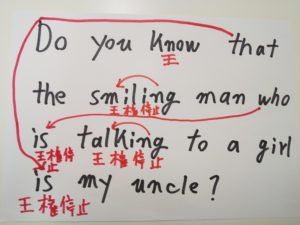 Do you know that
王
the smiling man who
王権停止
is talking to a girl
王権停止 王権停止
is my uncle?
王権停止